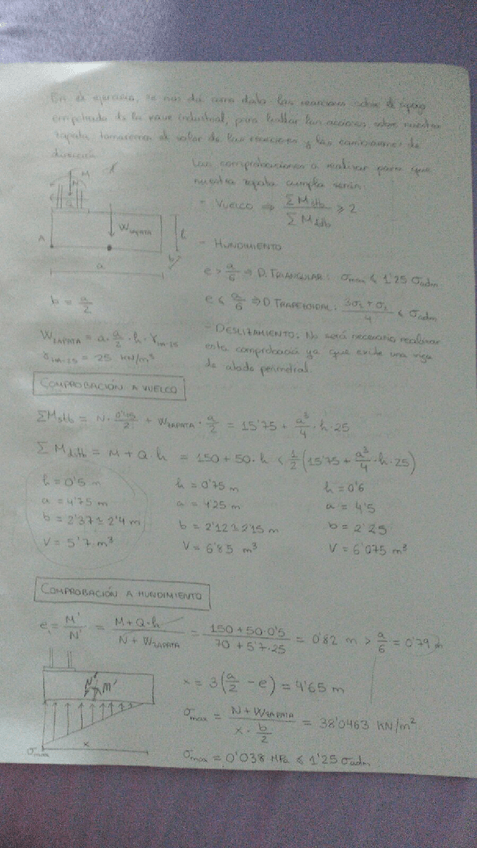 En el ejercicio, se nos da como dato las reacciones sobre el apoyo
empotrado de la nave industrial, para hallar las acciones sobre nuestra
zapata tomaremos el valor de las reacciones y las cambiaremos de
dirección
Las comprobaciones a realizar para que
nuestra zapata cumpla serán
- VUELCO ⇒ ΣM estb / ΣM dstb ≥ 2
M
N
W ZAPATA
A
a
b
h
- HUNDIMIENTO
e > a/6 ⇒ D. TRIANGULAR: σmax ≤ 1'25 σadm
b = a/2
e ≤ a/6 ⇒ D. TRAPEZOIDAL: (3σ1 + σ2)/4 ≤ σadm
W ZAPATA = a · a/2 · h · γ HA-25
- DESLIZAMIENTO: No será necesario realizar
γ HA-25 = 25 kN/m³
esta comprobación ya que existe una viga
de atado perimetral
COMPROBACIÓN A VUELCO
ΣM estb = N · /2 + W ZAPATA · a/2 = 15'75 + a³/4 · h · 25
ΣM dstb = M + Q · h = 150 + 50 · h ≤ 1/2 (15'75 + a³/4 · h · 25)
h = 0'5 m h = 0'75 m h = 0'6
a = 4'75 m a = 4'25 m a = 4'5
b = 2'37 ≃ 2'4 m b = 2'12 ≃ 2'15 m b = 2'25
V = 5'7 m³ V = 6'85 m³ V = 6'075 m³
COMPROBACIÓN A HUNDIMIENTO
e = M'/N' = (M + Q · h)/(N + W ZAPATA) = (150 + 50 · 0'5)/(70 + 5'7 · 25) = 0'82 m > a/6 = 0'79 m
N' M'
x = 3 (a/2 - e) = 4'65 m
σmax = (N + W ZAPATA)/(x · b/2) = 38'0463 KN/m²
σmax
x
σmax = 0'038 MPa ≤ 1'25 σadm